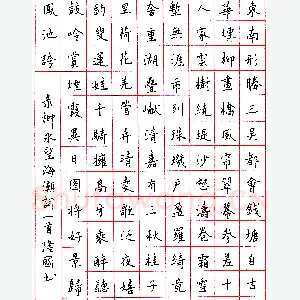 東南形勝三吳都會錢塘自古
華煙柳畫橋風簾翠幕參差十
人家雲樹繞堤沙怒濤卷霜
塹無涯市列珠璣戶盈羅綺
奢重湖疊巘清嘉有三秋桂子
里荷花羌管弄晴菱歌泛夜嬉
釣叟蓮娃千騎擁高牙乘醉聽
鼓吟賞煙霞異日圖將好景歸
鳳池誇
柳永望海潮詞一首隆國